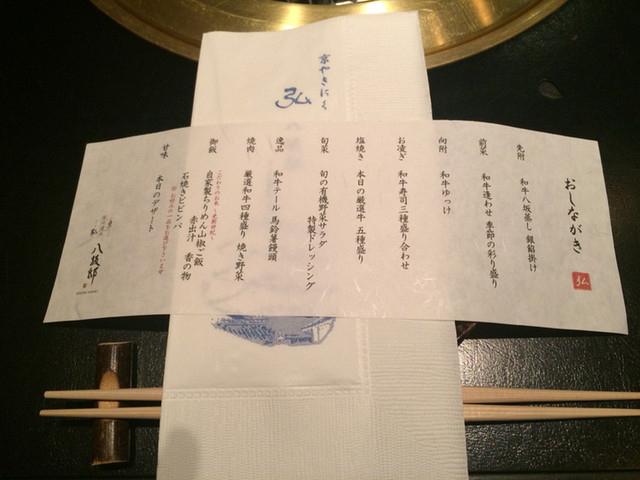 京やきにく
弘
おしながき
弘
先附
和牛八坂蒸し 銀餡掛け
前菜
和牛逢わせ 季節の彩り盛り
向附
和牛ゆっけ
お凌ぎ
和牛寿司三種盛り合わせ
塩焼き
本日の厳選牛 五種盛り
旬菜
旬の有機野菜サラダ
特製ドレッシング
逸品
和牛テール 馬鈴薯饅頭
焼肉
厳選和牛四種盛り 焼き野菜
御飯
自家製ちりめん山椒ご飯
赤出汁 香の物
石焼きビビンバ
甘味
本日のデザート
弘 八坂邸